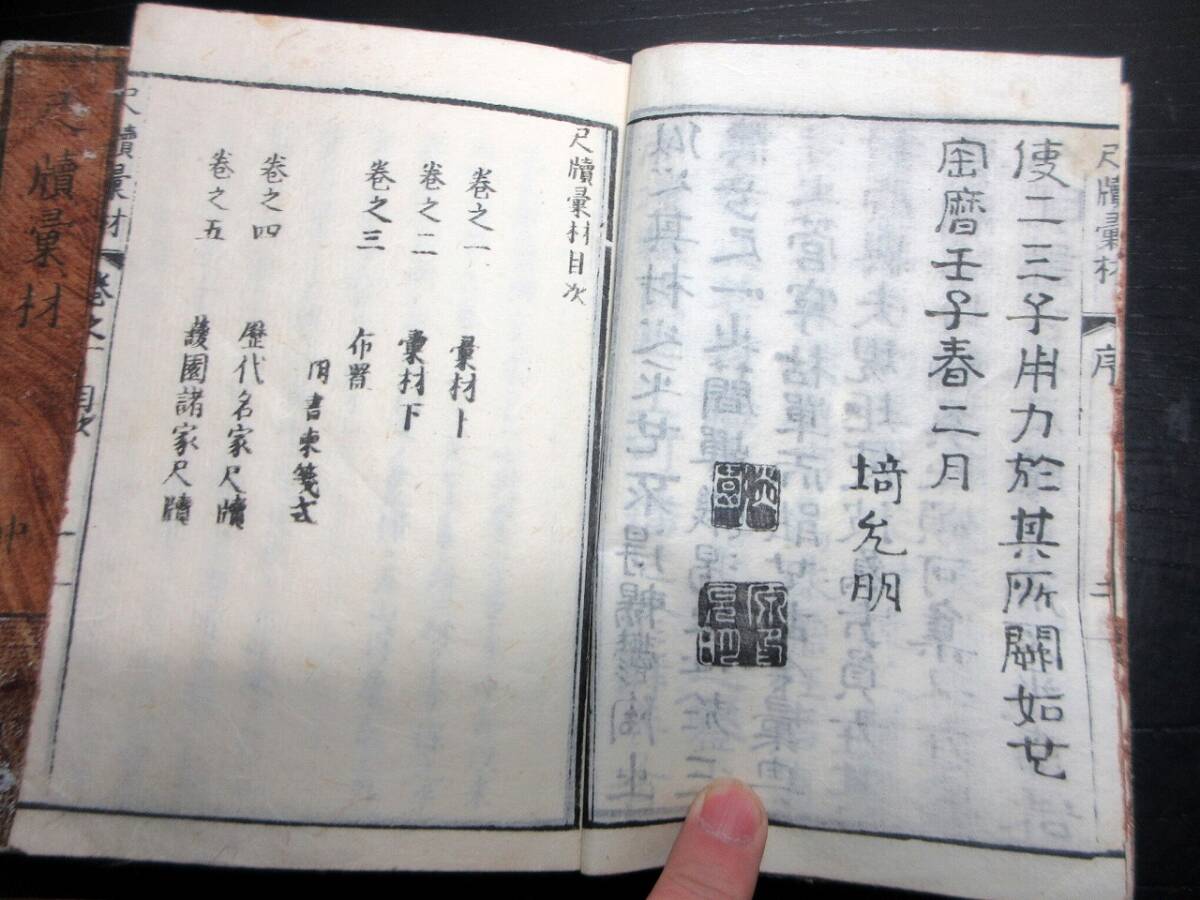 尺牘彙材
序
使二三子用力於其所闢如也
宝曆壬子春二月
埼允明
尺牘彙材目次
卷之一
彙材上
卷之二
彙材下
卷之三
布置
用書柬箋式
卷之四
歷代名家尺牘
卷之五
蘐園諸家尺牘
尺牘彙材
卷之一
目次
一
尺牘彙材